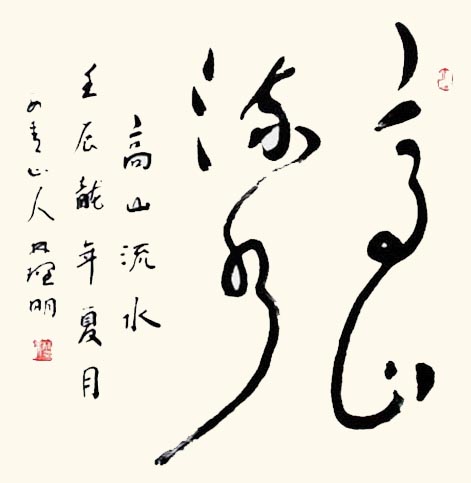 高山
流水
高山流水
壬辰龍年夏月
青山人 明